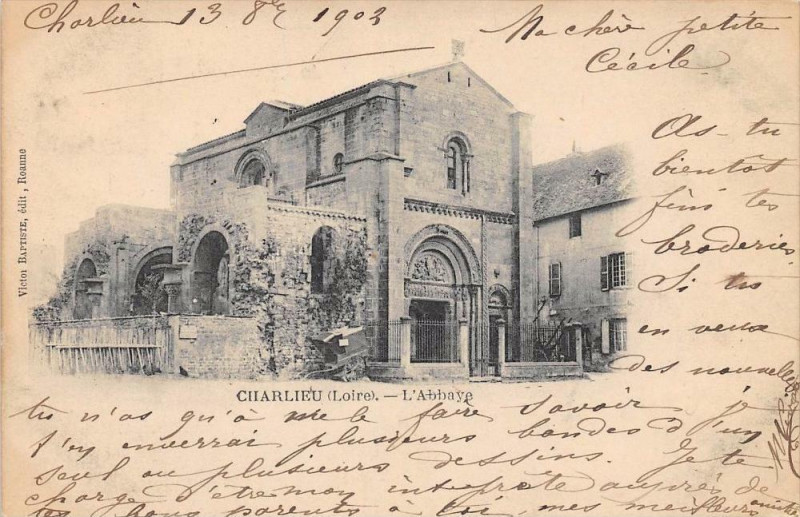 Charlieu 13 8bre 1903
Ma chère petite
Cécile
As-tu
bientôt
fini tes
broderies.
Si tu
en veux
des nouvelles
Victor BAPTISTE, édit, Roanne
CHARLIEU (Loire). — L'Abbaye
tu n'as qu'à me le faire savoir je
t'en enverrai plusieurs bandes d'un
seul ou plusieurs dessins. Je te
charge d'être mon interprète auprès de
tes bons parents à toi, mes meilleurs